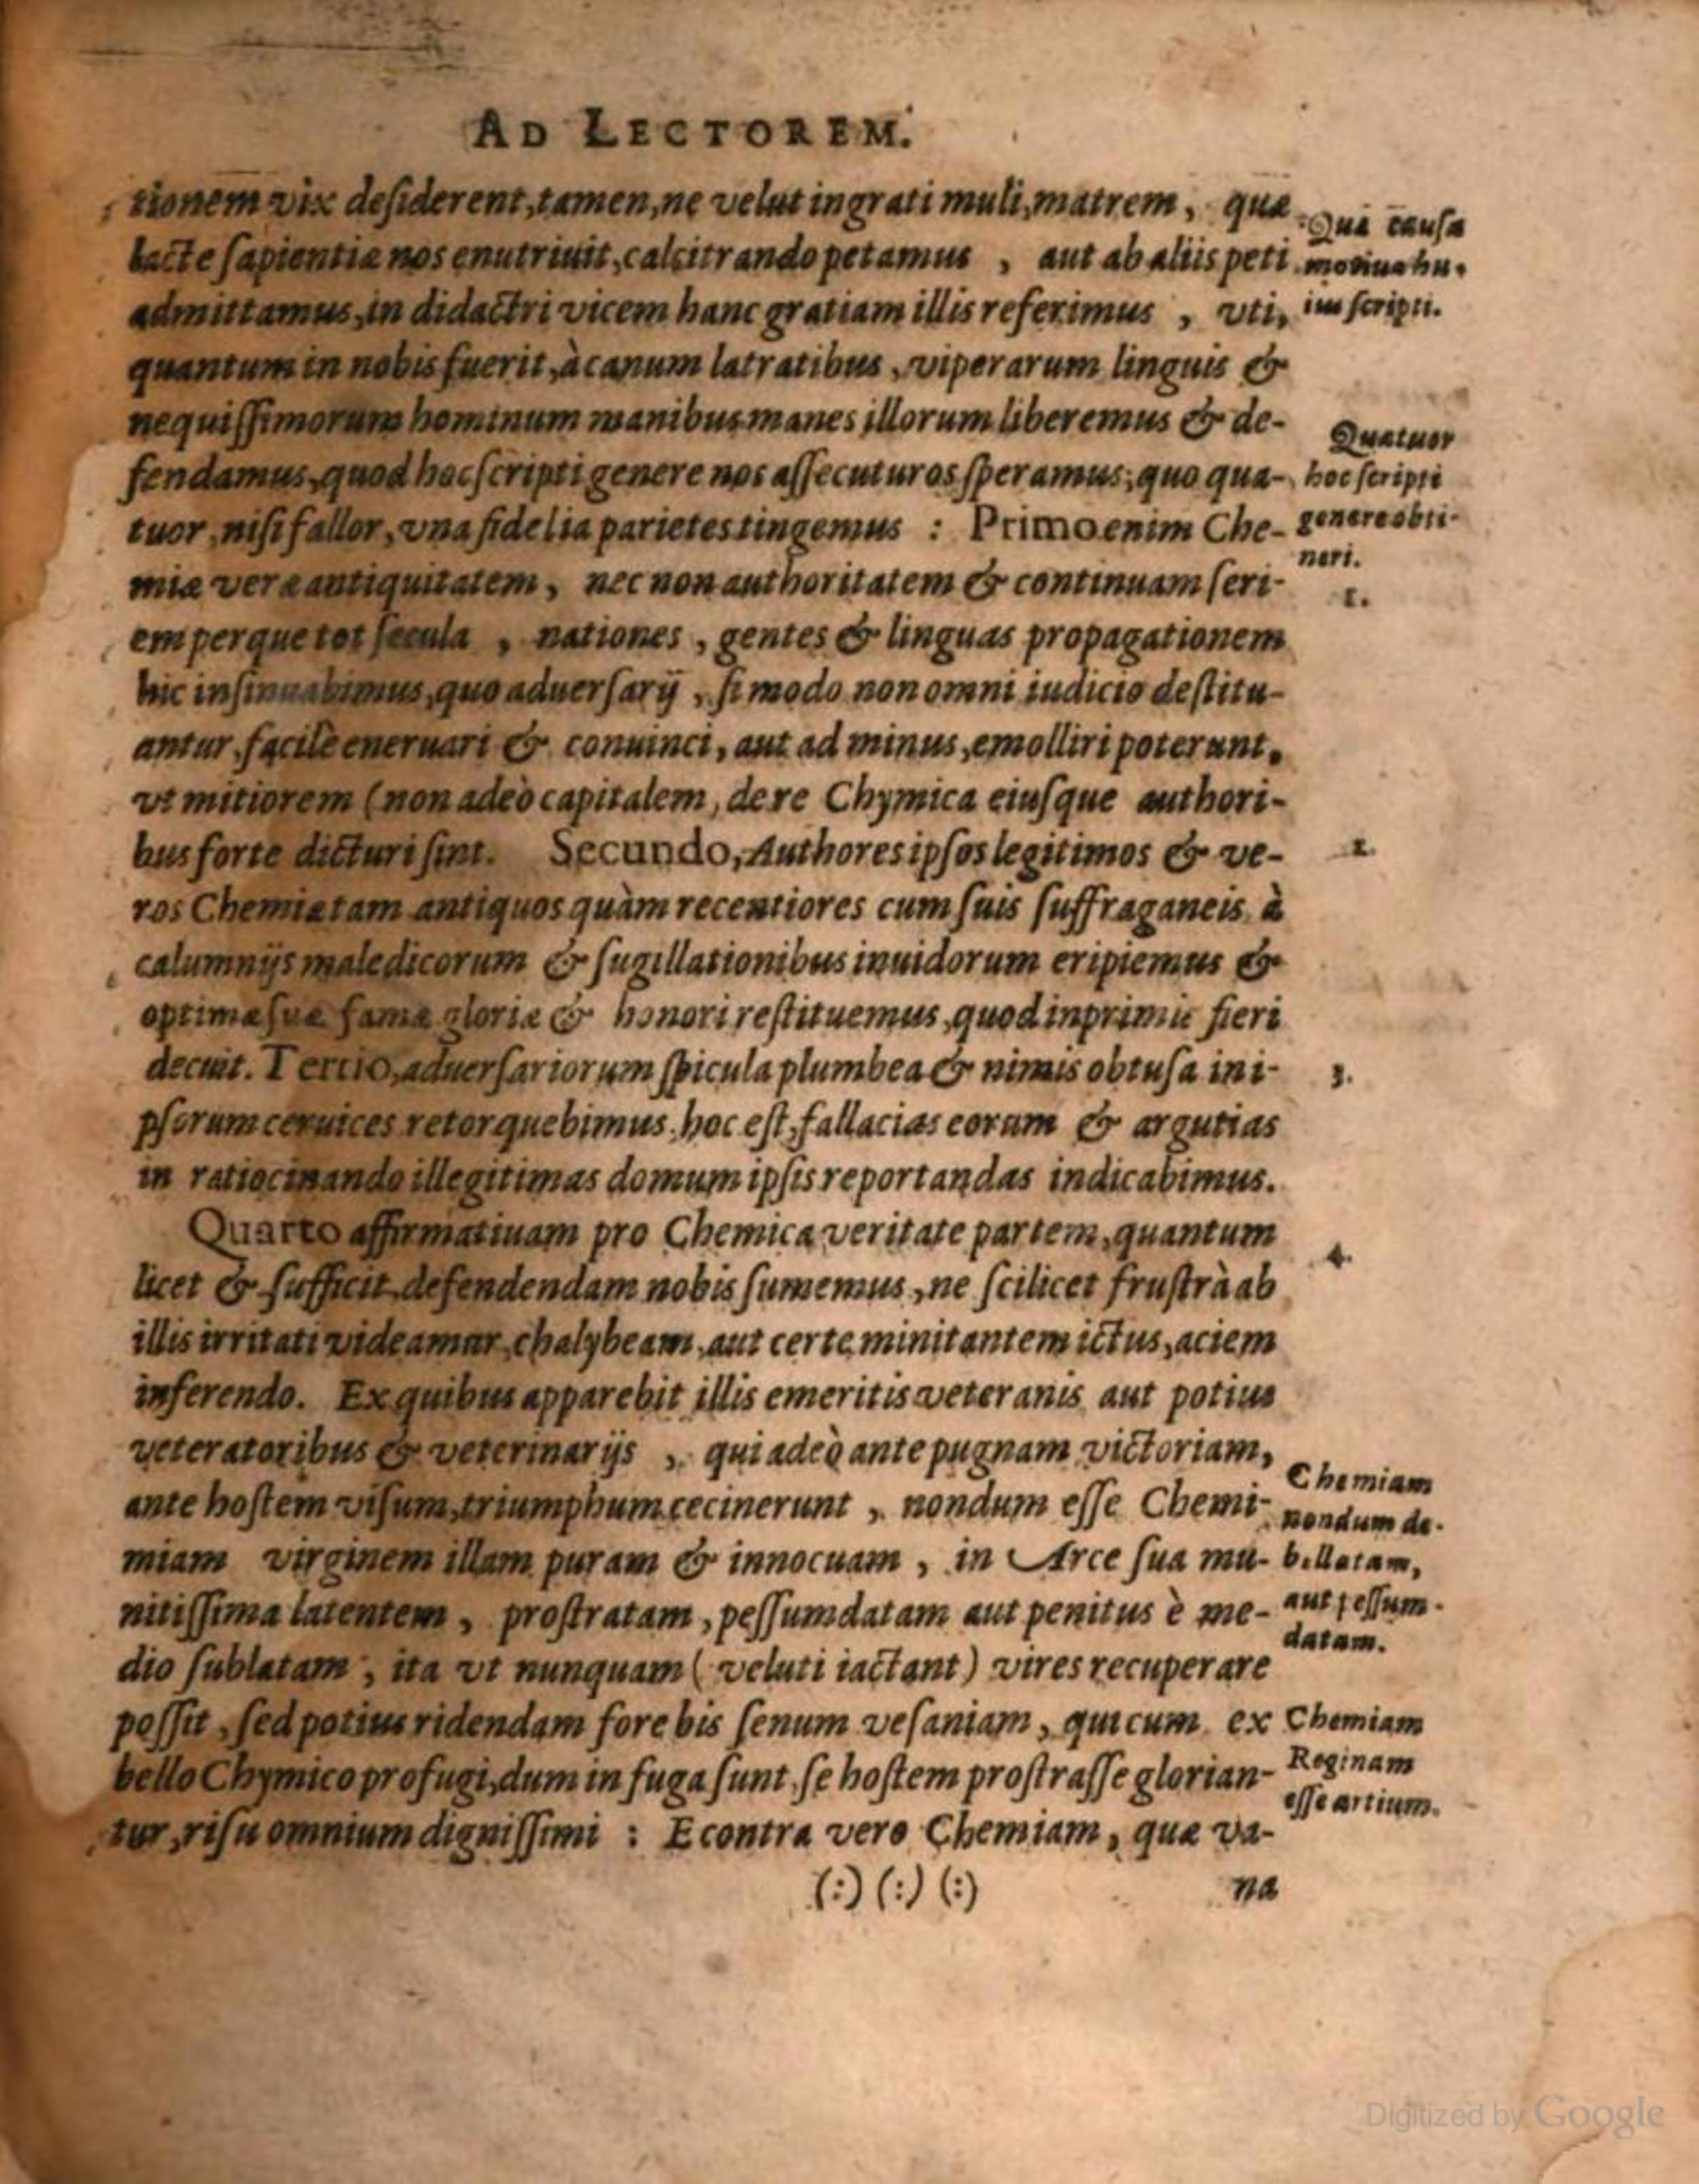 AD LECTOREM.
tionem vix deſiderent, tamen, ne velut ingrati muli, matrem, quæ
lacte ſapientiæ nos enutriuit, calcitrando petamus, aut ab aliis peti
admittamus, in didactri vicem hanc gratiam illis referimus, vti,
quantum in nobis fuerit, à canum latratibus, viperarum linguis &
nequiſſimorum hominum manibus manes illorum liberemus & de-
fendamus, quod hoc ſcripti genere nos aſſecuturos ſperamus; quo qua-
tuor, niſi fallor, vna fidelia parietes tingemus : Primo enim Che-
miæ veræ antiquitatem, nec non authoritatem & continuam ſeri-
em perque tot ſecula, nationes, gentes & linguas propagationem
hic inſinuabimus, quo aduerſarij, ſi modo non omni iudicio deſtitu-
antur, facilè eneruari & conuinci, aut ad minus, emolliri poterunt,
vt mitiorem (non adeò capitalem, de re Chymica eiuſque authori-
bus forte dicturi ſint. Secundo, Authores ipſos legitimos & ve-
ros Chemiæ tam antiquos quàm recentiores cum ſuis ſuffraganeis à
calumnijs maledicorum & ſugillationibus inuidorum eripiemus &
optimæ ſuæ famæ gloriæ & honori reſtituemus, quod inprimis fieri
decuit. Tertio, aduerſariorum ſpicula plumbea & nimis obtuſa in i-
pſorum ceruices retorquebimus, hoc eſt, fallacias eorum & argutias
in ratiocinando illegitimas domum ipſis reportandas indicabimus.
Quarto affirmatiuam pro Chemica veritate partem, quantum
licet & ſufficit defendendam nobis ſumemus, ne ſcilicet fruſtrà ab
illis irritati videamur, chalybeam, aut certe minitantem ictus, aciem
inferendo. Ex quibus apparebit illis emeritis veteranis aut potius
veteratoribus & veterinarijs, qui adeò ante pugnam victoriam,
ante hoſtem viſum, triumphum cecinerunt, nondum eſſe Chemi-
miam virginem illam puram & innocuam, in Arce ſua mu-
nitiſſima latentem, proſtratam, peſſumdatam aut penitus è me-
dio ſublatam, ita vt nunquam ( veluti iactant) vires recuperare
poſſit, ſed potius ridendam fore bis ſenum veſaniam, qui cum ex
bello Chymico profugi, dum in fuga ſunt, ſe hoſtem proſtraſſe glorian-
tur, riſu omnium digniſſimi : E contra vero Chemiam, quæ va-
(:) (:) (:) na
Qua cauſa
motiua hu-
ius ſcripti.
Quatuor
hoc ſcripti
genere obti-
neri.
1.
2.
3.
4.
Chemiam
nondum de-
bellatam,
aut peſſum-
datam.
Chemiam
Reginam
eſſe artium.
Digitized by Google